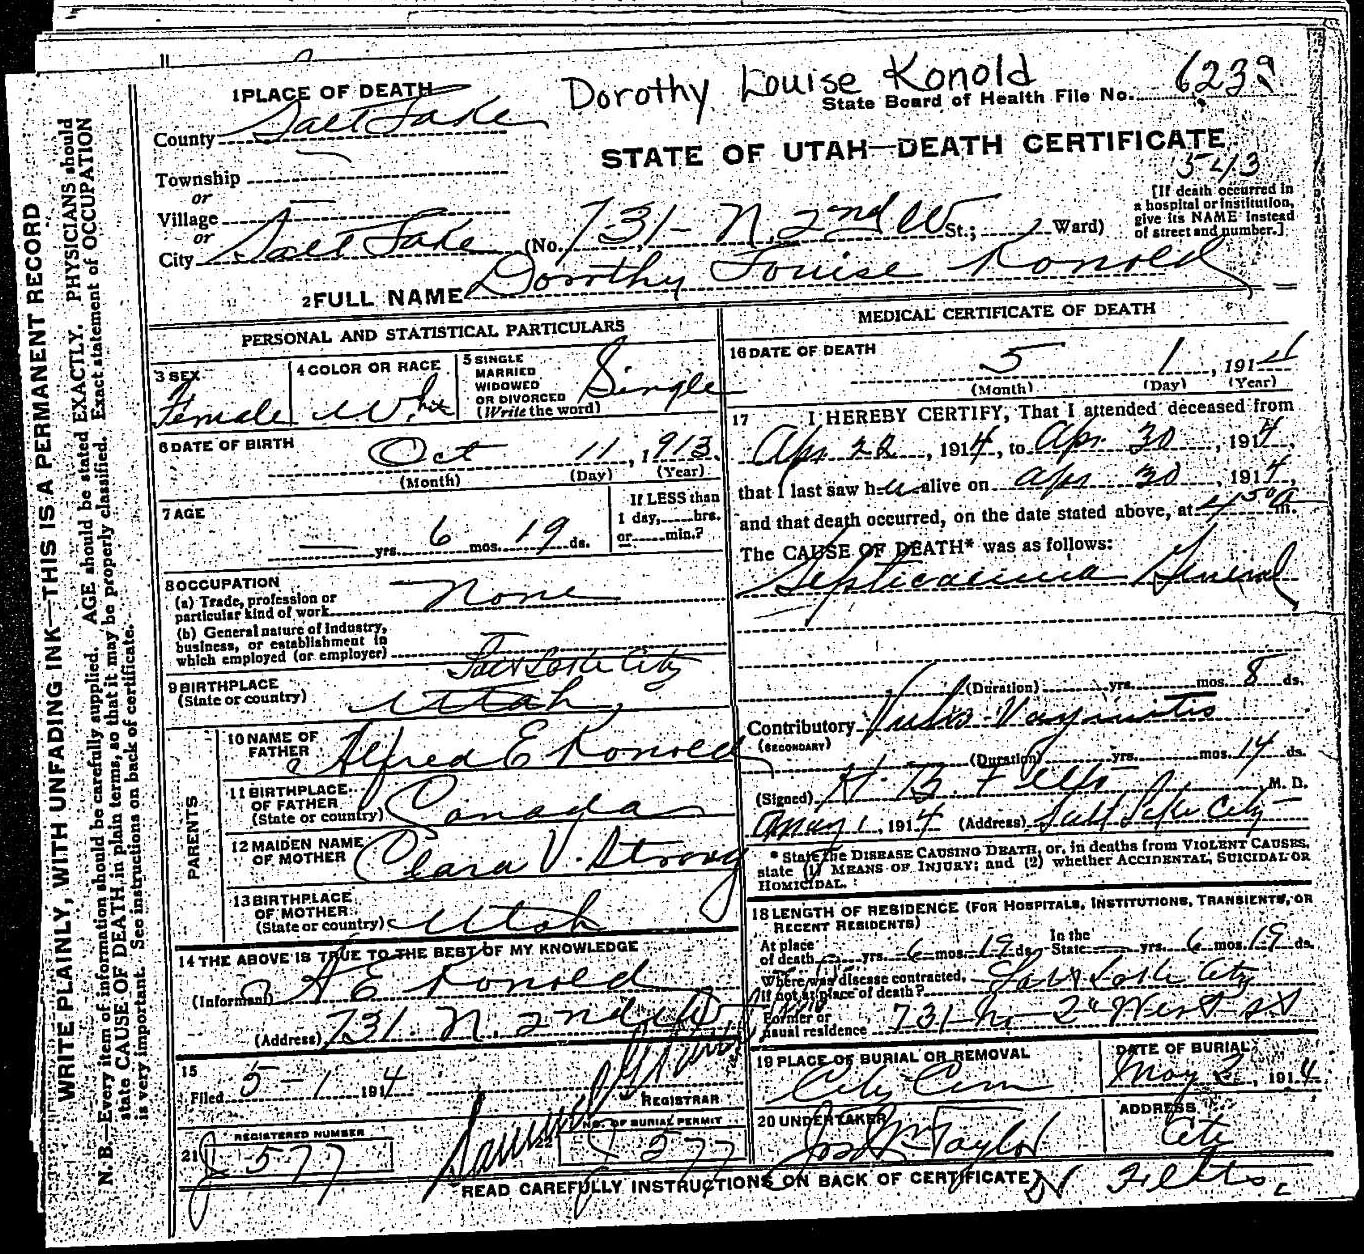 Dorothy Louise Konold
State Board of Health File No. 6239
STATE OF UTAH—DEATH CERTIFICATE
543
[If death occurred in a hospital or institution, give its NAME instead of street and number.]
1 PLACE OF DEATH
County Salt Lake
Township
or
Village
or
City Salt Lake (No. 731- N. 2nd W St.; Ward)
2 FULL NAME Dorothy Louise Konold
PERSONAL AND STATISTICAL PARTICULARS
3 SEX
Female
4 COLOR OR RACE
White
5 SINGLE
MARRIED
WIDOWED
OR DIVORCED
(Write the word)
Single
6 DATE OF BIRTH
Oct 11, 1913
(Month) (Day) (Year)
7 AGE
— yrs. 6 mos. 19 ds.
If LESS than
1 day,......hrs.
or......min.?
8 OCCUPATION
(a) Trade, profession or
particular kind of work None
(b) General nature of industry,
business, or establishment in
which employed (or employer)
9 BIRTHPLACE
(State or country)
Salt Lake City
Utah
PARENTS
10 NAME OF
FATHER Alfred E Konold
11 BIRTHPLACE
OF FATHER
(State or country) Canada
12 MAIDEN NAME
OF MOTHER Clara V. Strong
13 BIRTHPLACE
OF MOTHER
(State or country) Utah
14 THE ABOVE IS TRUE TO THE BEST OF MY KNOWLEDGE
(Informant) A E Konold
(Address) 731. N. 2nd W
15
Filed 5-1 1914
REGISTRAR
REGISTERED NUMBER
21 577
NO. OF BURIAL PERMIT
577
MEDICAL CERTIFICATE OF DEATH
16 DATE OF DEATH
5 1, 1914
(Month) (Day) (Year)
17 I HEREBY CERTIFY, That I attended deceased from
Apr 22, 1914, to Apr 30, 1914,
that I last saw her alive on Apr 30, 1914,
and that death occurred, on the date stated above, at 4 50 a m.
The CAUSE OF DEATH* was as follows:
Septicaemia General
(Duration) yrs. mos. 8 ds.
Contributory Vulvo-Vaginitis
(SECONDARY)
(Duration) yrs. mos. 14 ds.
(Signed) H. B. Felts M. D.
May 1, 1914 (Address) Salt Lake City
* State the DISEASE CAUSING DEATH, or, in deaths from VIOLENT CAUSES,
state (1) MEANS OF INJURY; and (2) whether ACCIDENTAL, SUICIDAL OR
HOMICIDAL.
18 LENGTH OF RESIDENCE (FOR HOSPITALS, INSTITUTIONS, TRANSIENTS, OR
RECENT RESIDENTS)
At place
of death — yrs. 6 mos. 19 ds. In the
State — yrs. 6 mos. 19 ds.
Where was disease contracted,
If not at place of death? Salt Lake City
Former or
usual residence 731 No 2d West St
19 PLACE OF BURIAL OR REMOVAL
City Cem
DATE OF BURIAL
May 2, 1914
20 UNDERTAKER
Jos Wm Taylor
ADDRESS
City
READ CAREFULLY INSTRUCTIONS ON BACK OF CERTIFICATE
Felts
WRITE PLAINLY, WITH UNFADING INK—THIS IS A PERMANENT RECORD
N. B.—Every item of information should be carefully supplied. AGE should be stated EXACTLY. PHYSICIANS should
state CAUSE OF DEATH in plain terms, so that it may be properly classified. Exact statement of OCCUPATION
is very important. See instructions on back of certificate.